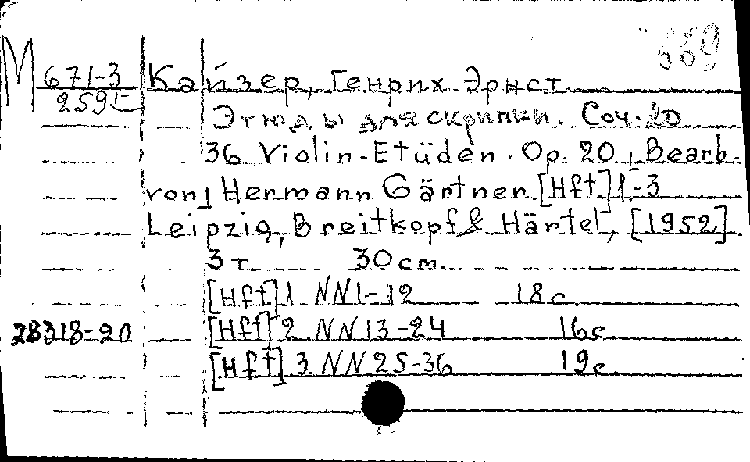 М 671-3
Кайзер, Генрих Эрнст
Этюды для скрипки. Соч. 20
36 Violin-Etüden. Op. 20, Bearb.
von Hermann Gärtner [Hft] 1-3
Leipzig, Breitkopf & Härtel, [1952]
3 т. 30 cm.
[Hft] 1 NN1-12 18 с
[Hft] 2 NN13-24 16 с
28318-20
[Hft] 3 NN25-36 19 с